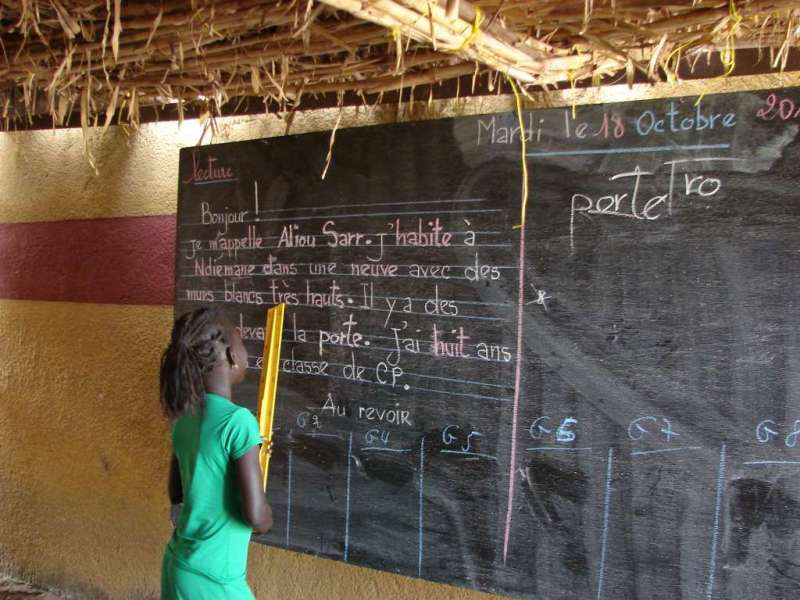 Mardi le 18 Octobre
lecture
porte Tro
Bonjour !
je m'appelle Aliou Sarr. j'habite à
Ndiemane dans une neuve avec des
murs blancs très hauts. Il y a des
la porte. J'ai huit ans
classe de CP.
Au revoir
G4 G5 G6 G7 G8